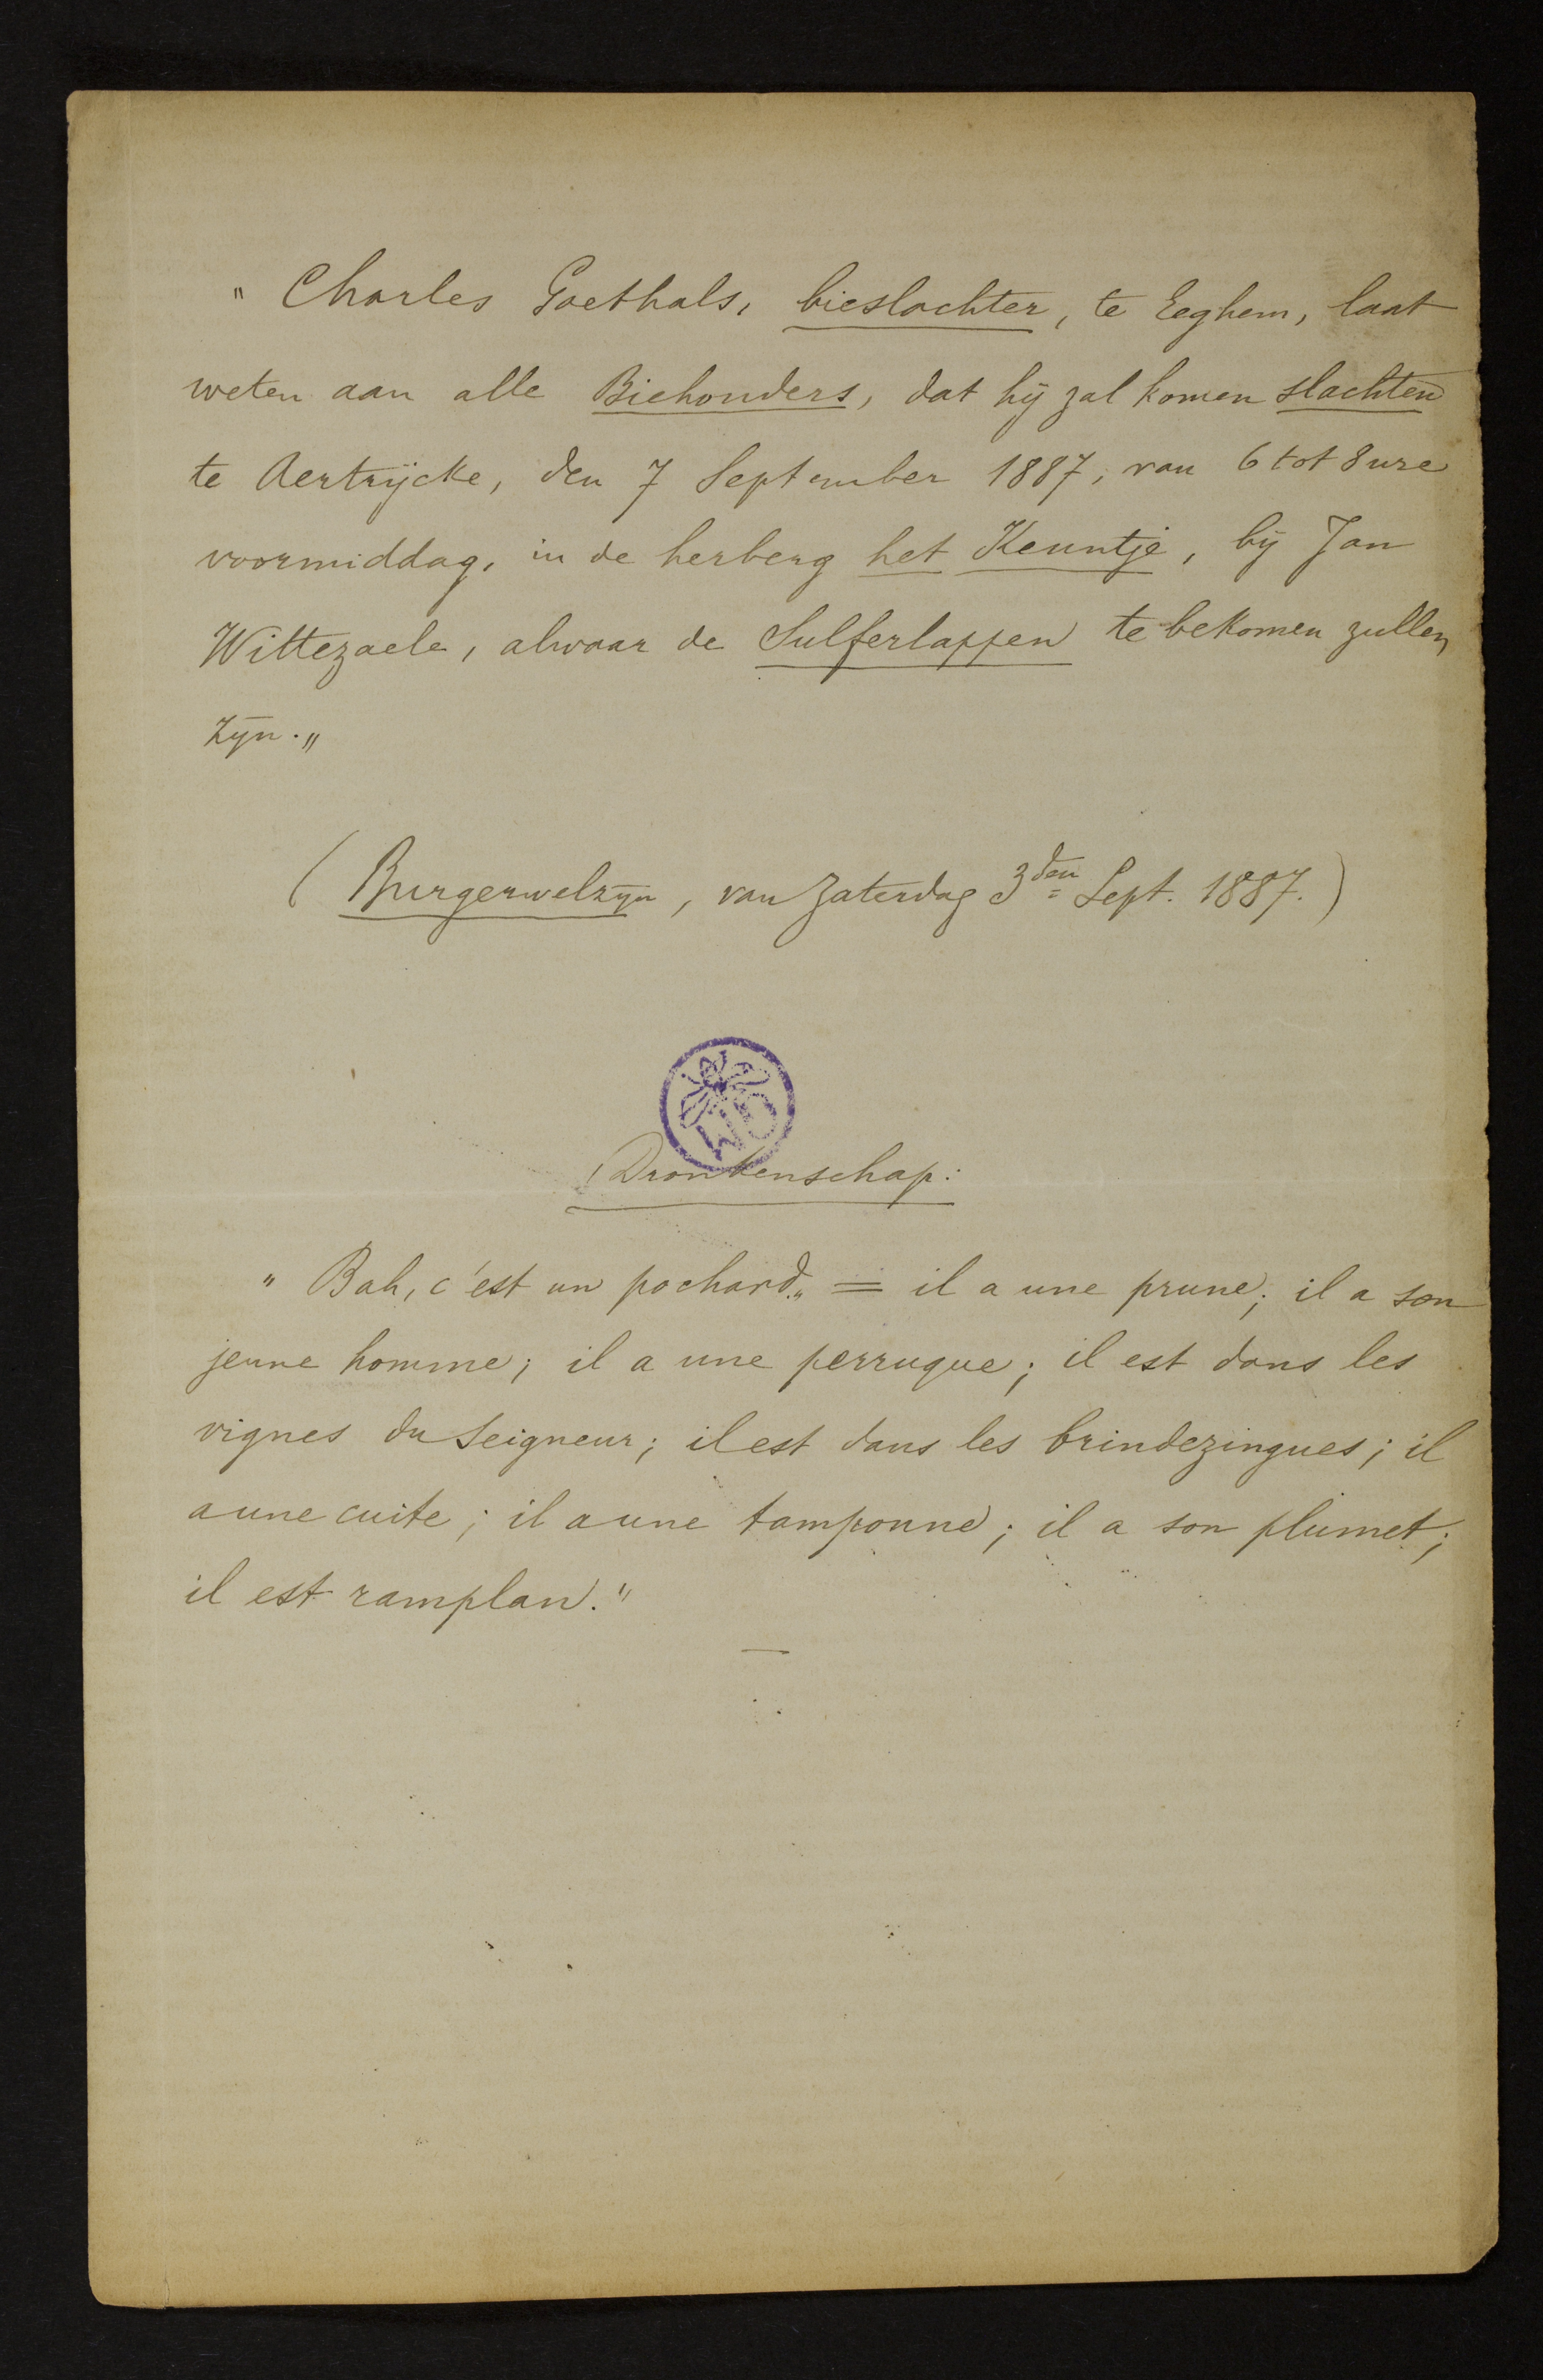 " Charles Goethals, bieslachter, te Eeghem, laat
weten aan alle Biehouders, dat hij zal komen slachten
te Aertrijcke, den 7 September 1887, van 6 tot 8 ure
voormiddag, in de herberg het Keuntje, bij Jan
Wittezaele, alwaar de Sulferlappen te bekomen zullen
zijn. "
( Burgerwelzijn, van Zaterdag 3den Sept. 1887. )
Dronkenschap:
" Bah, c'est un pochard." = il a une prune; il a son
jeune homme; il a une perruque; il est dans les
vignes du Seigneur; il est dans les brindezingues; il
a une cuite; il a une tamponne; il a son plumet;
il est ramplan."